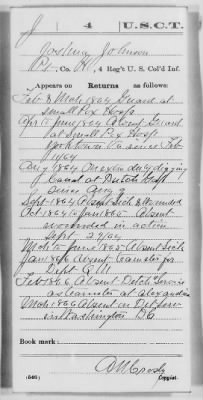 J 4 U.S.C.T.
Joshua Johnson
Pvt, Co. K, 4 Reg't U. S. Col'd Inf.
Appears on Returns as follows:
Feb & Mch 1864 Guard at
Small Pox Hosp
Apr to June 1864 Absent Guard
at Small Pox Hosp
Yorktown Va since Feb
1/64
Aug 1864 On extra duty digging
Canal at Dutch Gap
since Aug
Sept 1864 Absent Sick & Wounded
Oct 1864 to Jan 1865 Absent
wounded in action
Sept 29/64
Mch to June 1865 Absent Sick
Jan 1866 Absent Teamster for
Dept Q M
Feb 1866 Absent Detch Service
as teamster at Alexandria
Mch 1866 Absent on Det Serv
in Washington DC
Book mark:
(546) Copyist.